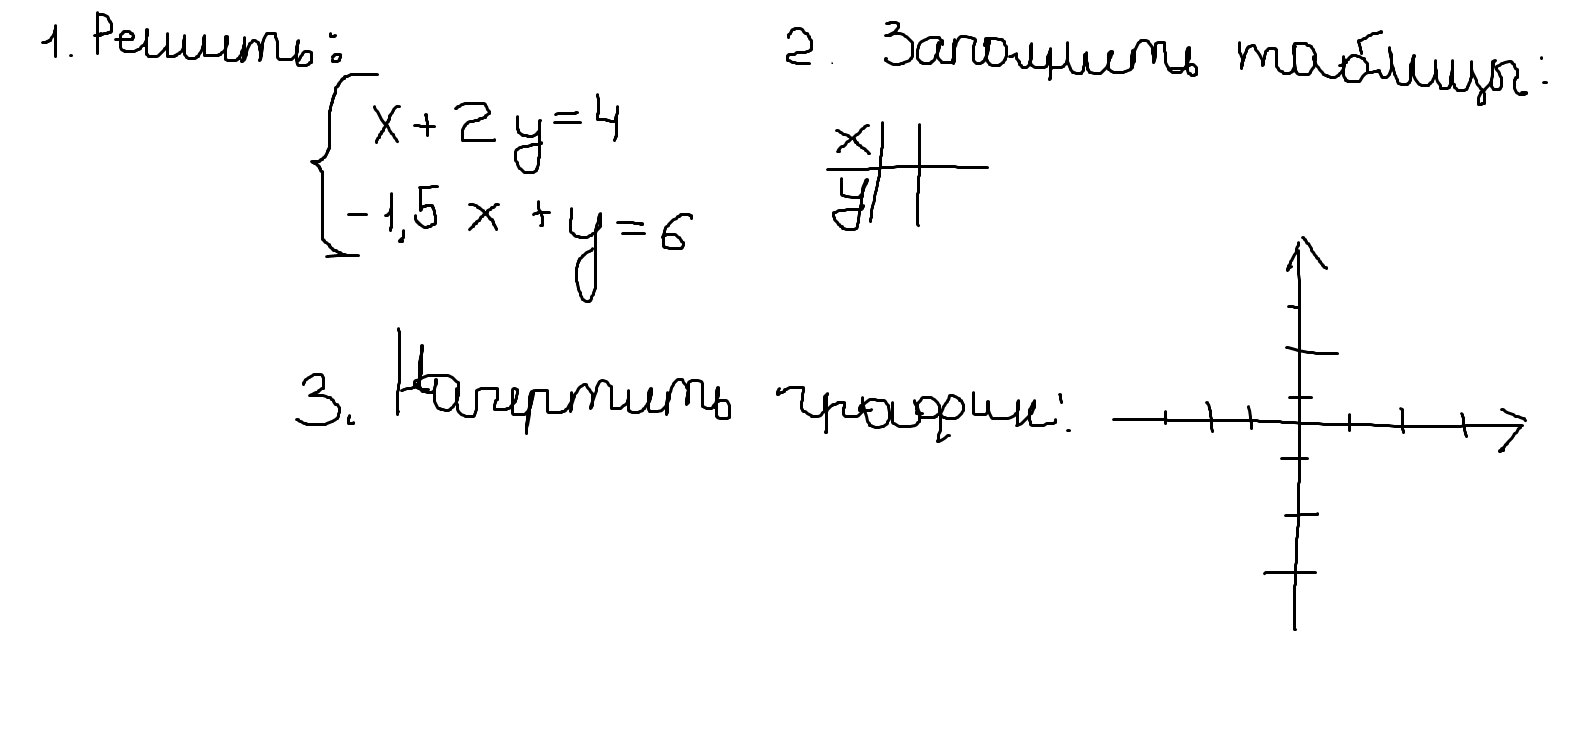 1. Решить:
x + 2y = 4
-1,5 x + y = 6
2. Заполнить таблицы:
x
y
3. Начертить график: